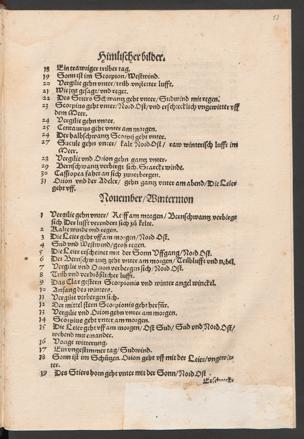 53
Himlischer bilder.
18 Ein trawriger trüber tag.
19 Sonn ist im Scorpion/ Westwind.
20 Vergilie gehn vnter/ trüb vnsteter lufft.
21 Wie jtzt gesagt/ vnd regen.
22 Des Stiers Schwantz geht vnter/ Sudwind mit regen.
23 Scorpius geht vnter/ Nord Ost/ vnd erschrecklich vngewitter vff
dem Meer.
24 Vergilie gehn vnter.
25 Centaurus geht vnter am morgen.
26 Der halb schwantz Scorpij geht vnter.
27 Sucule gehn vnter/ kalt Nord Ost/ raw winterisch lufft im
Meer.
28 Vergilie vnd Orion gehn gantz vnter.
29 Bernschwantz verbirgt sich. Starcke winde.
30 Cassiopea fahet an sich zuverbergen.
31 Orion vnd der Adeler/ gehn gantz vnter am abend/ Die Leier
geht vff.
November/ Wintermon
1 Vergilie gehn vnter/ Reiff am morgen/ Bernschwantz verbirgt
sich Der lufft verendert sich zu kelte.
2 Kalte winde vnd regen.
3 Die Leier geht vff am morgen/ Nord Ost.
4 Sud vnd Westwind/ gros regen.
5 Die Leier erscheinet mit der Sonn Vffgang/ Nord Ost.
6 Der Bernschwantz geht vnter am morgen/ Trüb lufft vnd nebel.
7 Vergilie vnd Orion verbergen sich/ Nord Ost.
8 Trüb vnd verdrößlicher lufft.
9 Das Clar gestirn Scorpionis vnd winter angel winckel.
10 Anfang des winters.
11 Vergilie verbergen sich.
12 Der mittel stern Scorpionis geht herfür.
13 Vergilie vnd Orion gehn vnter am morgen.
14 Scorpius geht vnter am morgen.
15 Die Leier geht vff am morgen/ Ost Sud/ Sud vnd Nord Ost/
wehend mit einander.
16 Vorige witterung.
17 Ein vngestümmer tag/ Sudwind.
18 Sonn ist im Schützen. Orion geht vff mit der Leier/ vngewitter.
19 Des Stiers horn geht vnter mit der Sonn/ Nord Ost